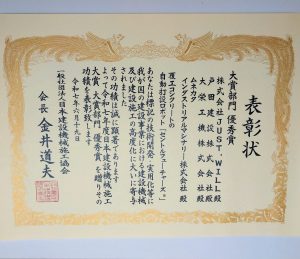 表彰状
大賞部門 優秀賞
株式会社JUST.WILL殿
戸田建設株式会社殿
大栄工機株式会社殿
ムネカタ
インダストリアルマシナリー株式会社殿
覆工コンクリートの
自動打設ロボット「セントルフューチャーズ®」
あなたは標記の技術開発・実用化等に
我が国の建設事業における建設機械
及び建設施工の高度化に大いに寄与
されました
その功績は誠に顕著であります
よって令和七年度日本建設機械施工
大賞 大賞部門 優秀賞を贈りその
功績を表彰致します
令和七年六月十九日
一般社団法人日本建設機械施工協会
会長 金井道夫